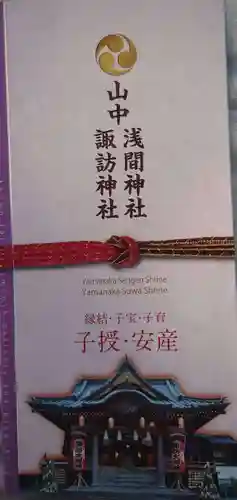 山中
浅間神社
諏訪神社
Yamanaka Sengen Shrine
Yamanaka Suwa Shrine
縁結・子宝・子育
子授・安産